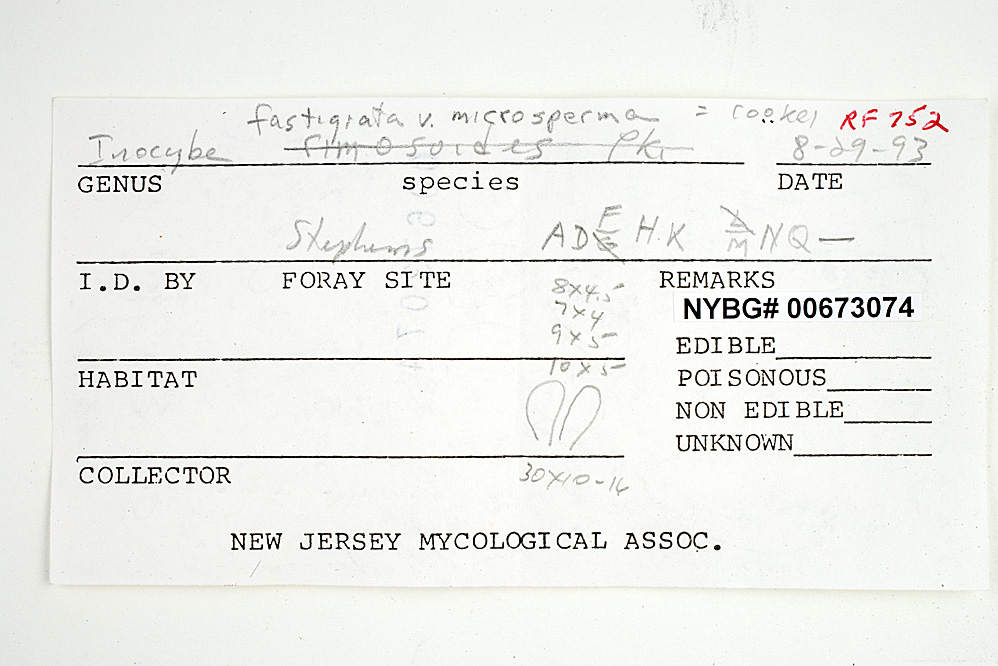 fastigiata v. microsperma = cookei RF 752
Inocybe fimosoides Pk. 8-29-93
GENUS species DATE
Stephens AD H.K NQ —
I.D. BY FORAY SITE REMARKS
8x4.5
7x4
9x5
10x5
NYBG# 00673074
EDIBLE
HABITAT
POISONOUS
NON EDIBLE
UNKNOWN
COLLECTOR
30x10-14
NEW JERSEY MYCOLOGICAL ASSOC.